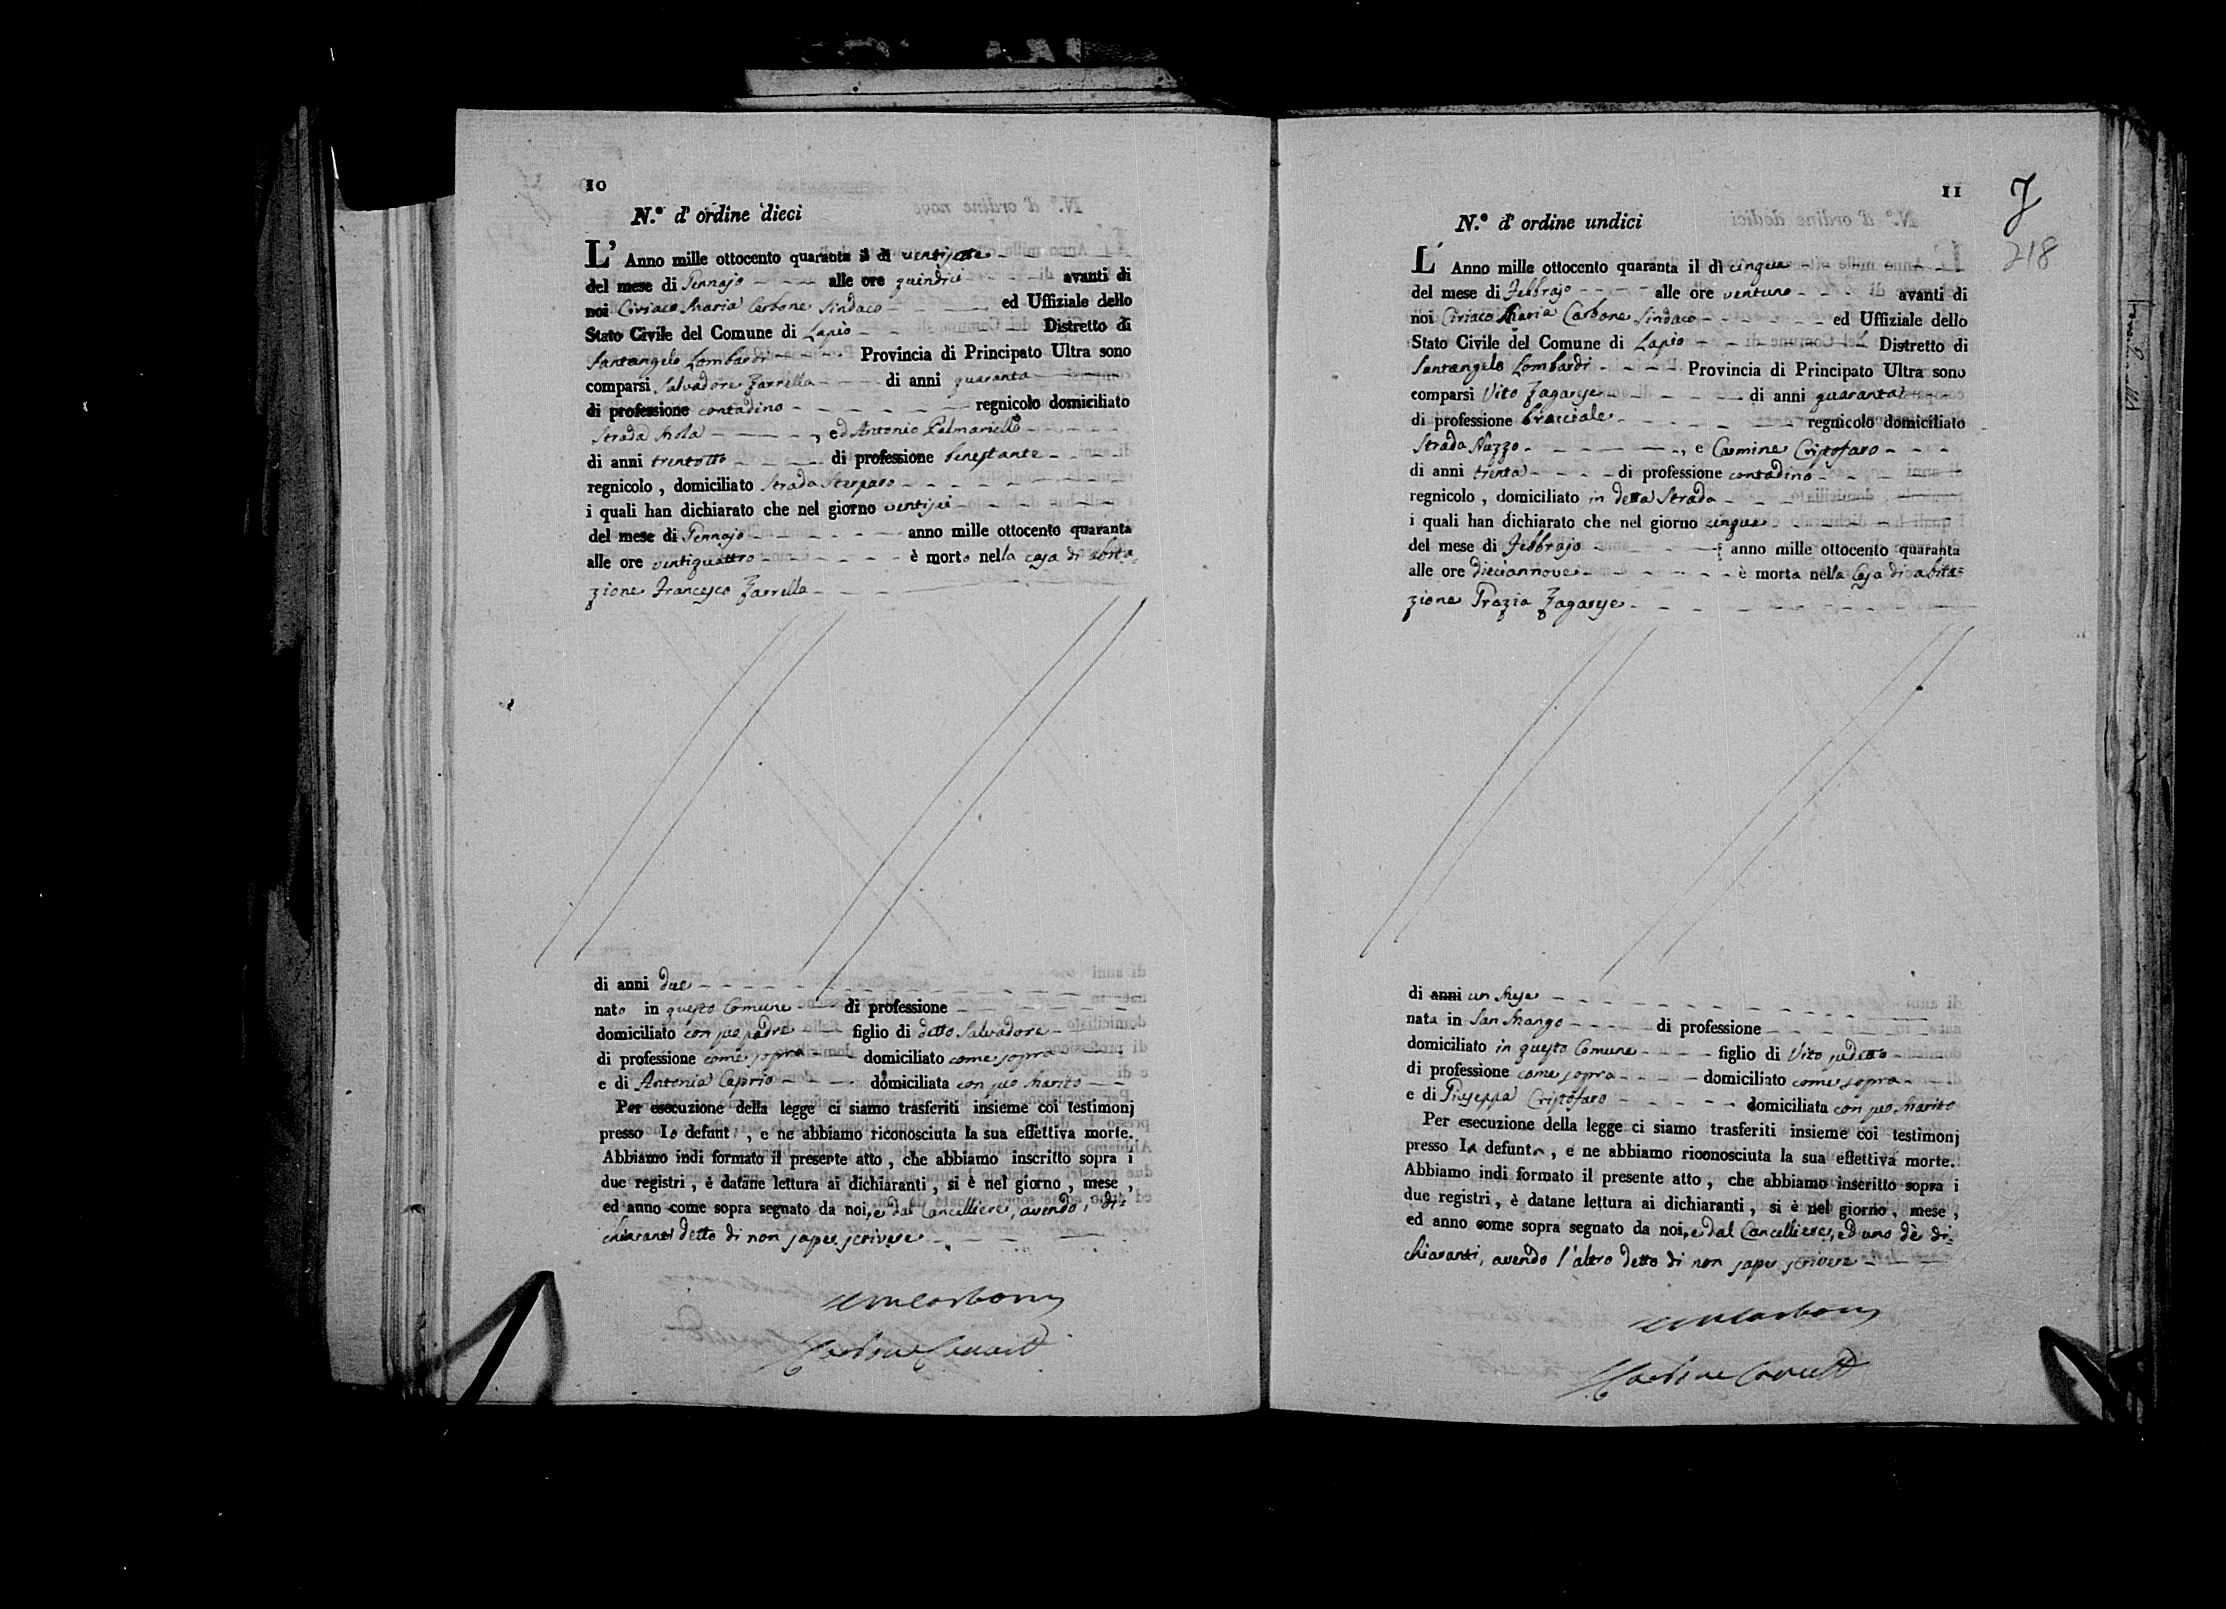 10
N.º d' ordine dieci
L' Anno mille ottocento quaranta il dì ventisette
del mese di Gennajo alle ore quindici avanti di
noi Ciriaco Maria Carbone Sindaco ed Uffiziale dello
Stato Civile del Comune di Lapio Distretto di
Santangelo Lombardi Provincia di Principato Ultra sono
comparsi Salvadore Zarrella di anni quaranta
di professione contadino regnicolo domiciliato
Strada Mola , ed Antonio Palmariello
di anni trentotto di professione benestante
regnicolo , domiciliato Strada
i quali han dichiarato che nel giorno ventisei
del mese di Gennajo anno mille ottocento quaranta
alle ore ventiquattro è morto nella casa di abita=
zione Francesco Zarrella
di anni due
nato in questo Comune di professione
domiciliato con suo padre figlio di detto Salvadore
di professione come sopra domiciliato come sopra
e di Antonia Caprio domiciliata con suo Marito
Per esecuzione della legge ci siamo trasferiti insieme coi testimonj
presso lo defunt , e ne abbiamo riconosciuta la sua effettiva morte.
Abbiamo indi formato il presente atto , che abbiamo inscritto sopra i
due registri , è datane lettura ai dichiaranti , si è nel giorno , mese ,
ed anno come sopra segnato da noi, e dal Cancelliere, avendo i di=
chiaranti detto di non saper scrivere
11
7
218
N.º d' ordine undici
L' Anno mille ottocento quaranta il dì cinque
del mese di Febbrajo alle ore ventuno avanti di
noi Ciriaco Maria Carbone Sindaco ed Uffiziale dello
Stato Civile del Comune di Lapio Distretto di
Santangelo Lombardi Provincia di Principato Ultra sono
comparsi Vito Zagarese di anni quaranta
di professione bracciale regnicolo domiciliato
Strada Nuzzo , e Carmine Cristofaro
di anni trenta di professione contadino
regnicolo , domiciliato in detta Strada
i quali han dichiarato che nel giorno cinque
del mese di Febbrajo anno mille ottocento quaranta
alle ore diciannove è morta nella Casa di abita=
zione Grazia Zagarese
di anni un Mese
nata in San Mango di professione
domiciliato in questo Comune figlio di Vito sudetto
di professione come sopra domiciliato come sopra
e di Giuseppa Cristofaro domiciliata con suo Marito
Per esecuzione della legge ci siamo trasferiti insieme coi testimonj
presso la defunta , e ne abbiamo riconosciuta la sua effettiva morte.
Abbiamo indi formato il presente atto , che abbiamo inscritto sopra i
due registri , è datane lettura ai dichiaranti , si è nel giorno , mese ,
ed anno come sopra segnato da noi, e dal Cancelliere, ed uno dè di=
chiaranti, avendo l'altro detto di non saper scrivere